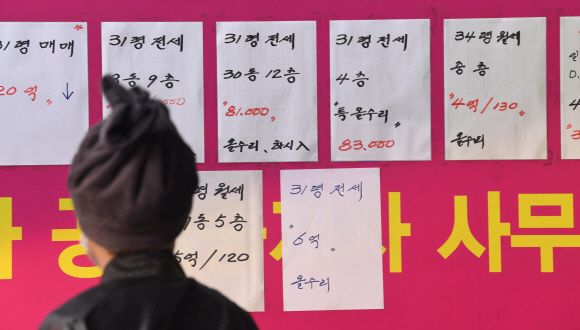 31평 매매
20억 ↓
31평 전세
3동 9층
31평 전세
30동 12층
"81.000"
올수리, 화시入
31평 전세
4층
"특올수리"
83.000
34평 월세
중층
"4억/130"
올수리
평 월세
동 5층
억/120
31평 전세
"6억"
올수리
사 사무